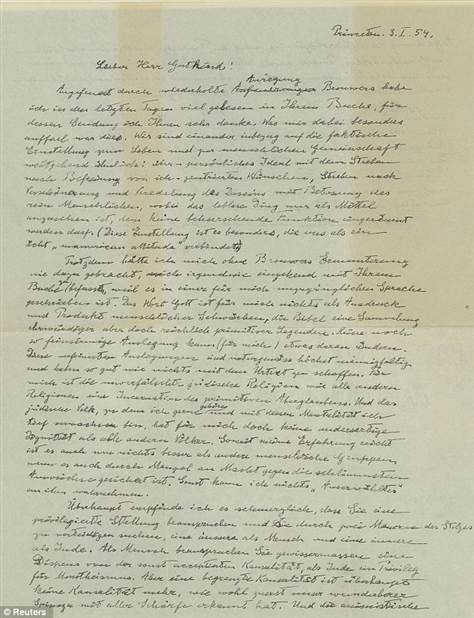 Princeton. 3. I. 54.
Lieber Herr Gutkind!
Angefeuert durch wiederholte Anregung Brouwers habe
ich in den letzten Tagen viel gelesen in Ihrem Buche, für
dessen Sendung ich Ihnen sehr danke. Was mir dabei besonders
auffiel war dies. Wir sind einander inbezug auf die faktische
Einstellung zum Leben und zur menschlichen Gemeinschaft
weitgehend ähnlich: persönliches Ideal mit dem Streben
nach Befreiung von ich-zentrierten Wünschen, Streben nach
Verschönerung und Veredelung des Daseins mit Betonung des
rein Menschlichen, wobei das leblose Ding nur als Mittel
anzusehen ist, dem keine beherrschende Funktion eingeräumt
werden darf. (Diese Einstellung ist es besonders, die uns als ein
echt "unamerican attitude" verbindet)
Trotzdem hätte ich mich ohne Brouwers Ermunterung
nie dazu gebracht, mich irgendwie eingehend mit Ihrem
Buche zu befassen, weil es in einer für mich unzugänglichen Sprache
geschrieben ist. Das Wort Gott ist für mich nichts als Ausdruck
und Produkt menschlicher Schwächen, die Bibel eine Sammlung
ehrwürdiger aber doch reichlich primitiver Legenden. Keine noch
so feinsinnige Auslegung kann (für mich) etwas daran ändern.
Diese verfeinerten Auslegungen sind naturgemäss höchst mannigfaltig
und haben so gut wie nichts mit dem Urtext zu schaffen. Für
mich ist die unverfälschte jüdische Religion wie alle anderen
Religionen eine Incarnation des primitiven Aberglaubens. Und das
jüdische Volk, zu dem ich gerne gehöre und mit dessen Mentalität ich
tief verwachsen bin, hat für mich doch keine andersartige
Dignität als alle anderen Völker. Soweit meine Erfahrung reicht
ist es auch um nichts besser als andere menschliche Gruppen
wenn es auch durch Mangel an Macht gegen die schlimmsten
Auswüchse gesichert ist. Sonst kann ich nichts "Auserwähltes"
an ihm wahrnehmen.
Überhaupt empfinde ich es schmerzlich, dass Sie eine
privilegierte Stellung beanspruchen und sie durch zwei Mauern des Stolzes
zu verteidigen suchen, eine äussere als Mensch und eine innere
als Jude. Als Mensch beanspruchen Sie gewissermassen einen
Dispens von der sonst acceptierten Kausalität, als Jude ein Privileg
für Monotheismus. Aber eine begrenzte Kausalität ist überhaupt
keine Kausalität mehr, wie wohl zuerst unser wunderbarer
Spinoza mit aller Schärfe erkannt hat. Und die animistische
© Reuters